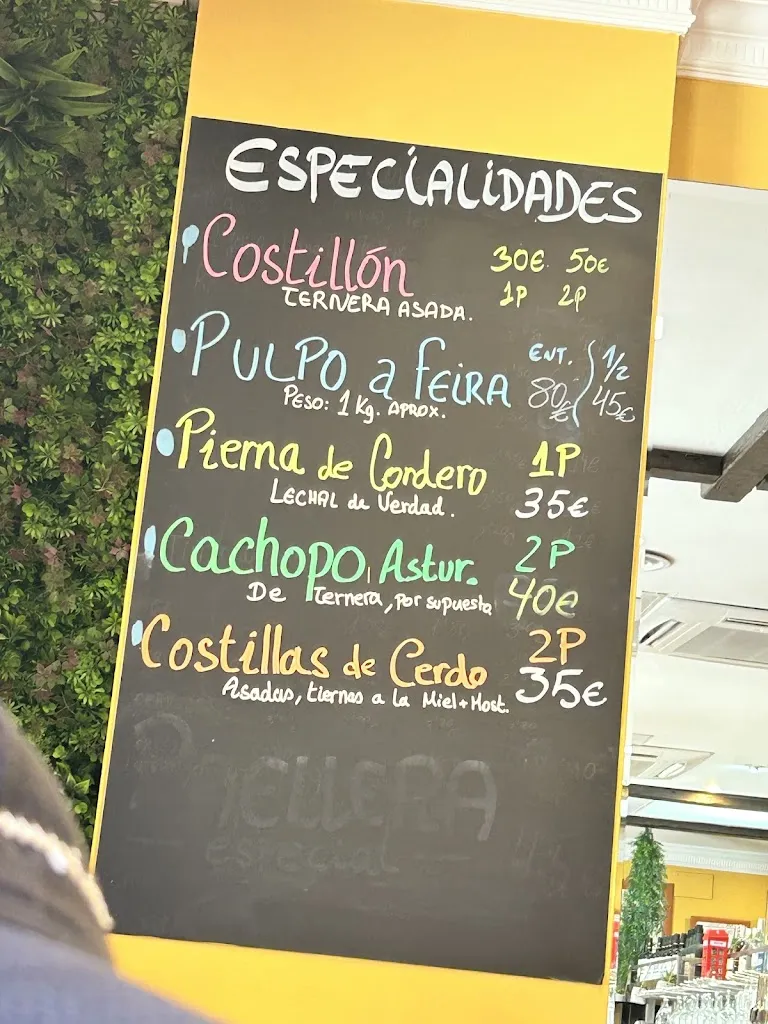 ESPECIALIDADES
Costillón 30€ 50€
TERNERA ASADA. 1P 2P
PULPO a feira ENT. 1/2
PESO: 1 Kg. APROX. 80€ 45€
Pierna de Cordero 1P
LECHAL de Verdad. 35€
Cachopo Astur. 2P
De Ternera, por supuesto 40€
Costillas de Cerdo 2P
Asadas, tiernas a la Miel+Most. 35€
especial